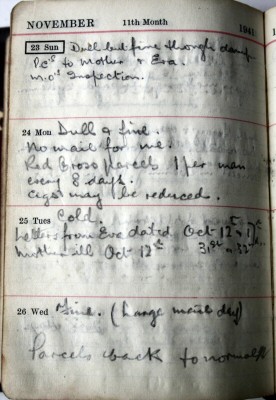 NOVEMBER 11th Month 1941
23 Sun Dull but fine though damp
P.C's to Mother & Eva.
M.O's Inspection.
24 Mon Dull & fine.
No mail for me.
Red Cross parcels 1 per man
every 8 days.
Cigs may be reduced.
25 Tues Cold.
Letters from Eve dated Oct 12th 17th
Mother Oct 12th 31st
26 Wed Fine. (Large mail day)
Parcels back to normal